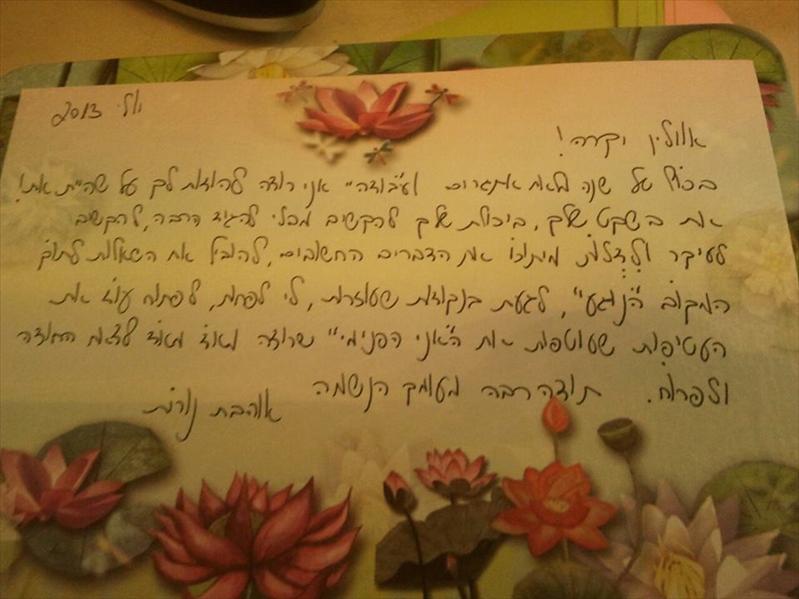 יולי 2013
אוולין יקרה!
בסוף של שנה מלאת אתגרים ו"עבודה" אני רוצה להודות לך על שהיית את!
את בשקט שלך, ביכולת שלך להקשיב מבלי להגיד הרבה, להקשיב
לעיקר ולדלות מיתוכו את הדברים החשובים, להוביל את השאלות לתוך
המקום "הנוגע", לגעת בנקודות שעוזרות, לי לפחות, לפתוח עוד את
העטיפות שעוטפות את ה"אני הפנימי" שרוצה מאוד מאוד לצאת החוצה
ולפרוח. תודה רבה מעומק הנשמה
אוהבת נורית